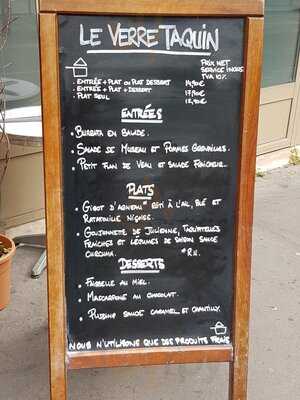 LE VERRE TAQUIN
PRIX NET
SERVICE INCLUS
TVA 10%
- ENTRÉE + PLAT OU PLAT DESSERT 14,90€
- ENTRÉE + PLAT + DESSERT 17,90€
- PLAT SEUL 12,90€
ENTRÉES
• BURRATA EN SALADE.
• SALADE DE MUSEAU ET POMMES GRENAILLES.
• PETIT FLAN DE VEAU ET SALADE FRAÎCHEUR.
PLATS
• GIGOT D'AGNEAU* RÔTI À L'AIL, BLÉ ET
RATATOUILLE NIÇOISE.
• GOUJONNETTE DE JULIENNE, TAGLIATELLES
FRAÎCHES ET LÉGUMES DE SAISON SAUCE
CURCUMA.
DESSERTS
• FAISSELLE AU MIEL.
• MASCARPONE AU CHOCOLAT.
• PUDDING SAUCE CARAMEL ET CHANTILLY.
NOUS N'UTILISONS QUE DES PRODUITS FRAIS